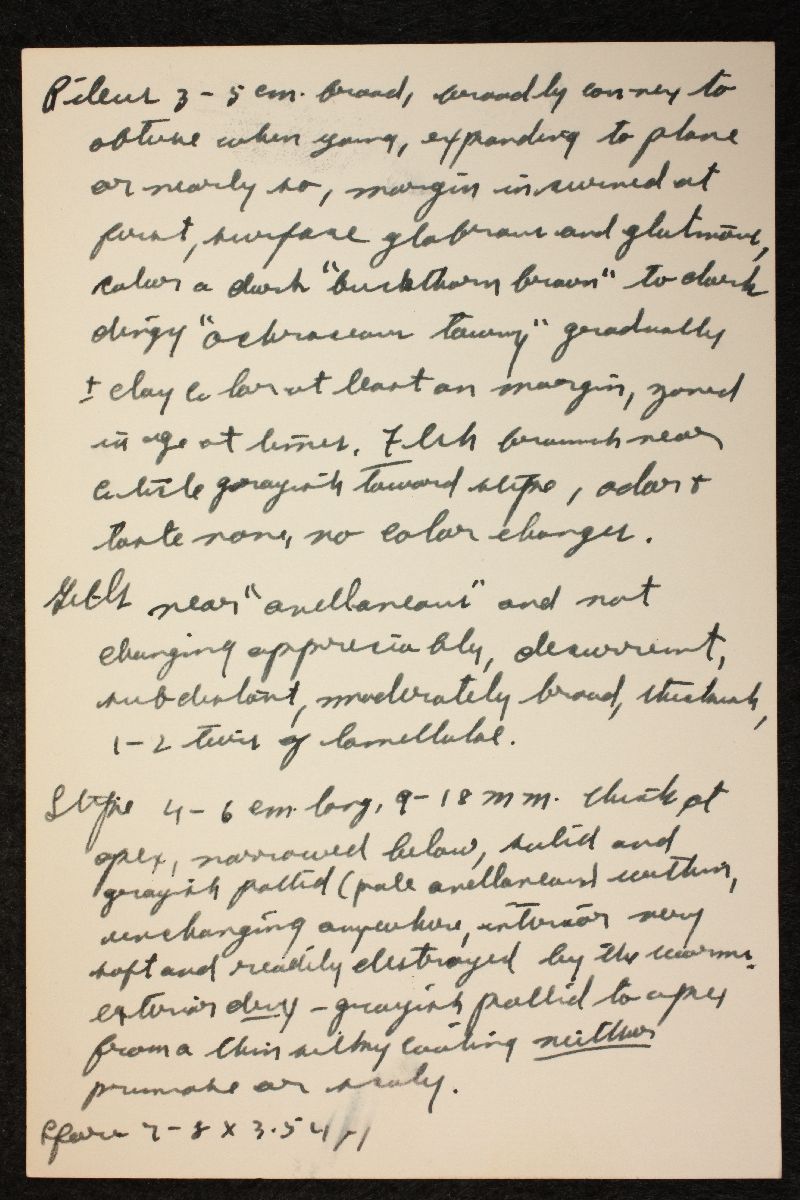 Pileus 3-5 cm. broad, broadly convex to
obtuse when young, expanding to plane
or nearly so, margin incurved at
first, surface glabrous and glutinous,
color a dark "buckthorn brown" to dark
dingy "ochraceous tawny" gradually
± clay color at least on margin, zoned
in age at times. Flsh brownish near
cuticle grayish toward stipe, odor +
taste none, no color changes.
Gills near "avellaneous" and not
changing appreciably, decurrent,
subdistant, moderately broad, thickish,
1-2 tiers of lamellulae.
Stipe 4-6 cm. long, 9-18 mm. thick at
apex, narrowed below, solid and
grayish pallid (pale avellaneous) within,
unchanging anywhere, interior very
soft and readily destroyed by the worms.
exterior dry - grayish pallid to apex
from a thin silky coating neither
pruinose or scaly.
Spores 7-8 x 3.5-4 μ